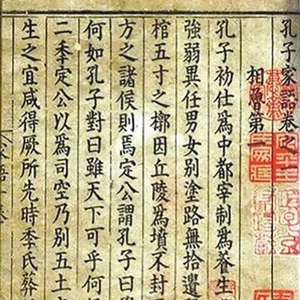 孔子家語卷之
相魯第一
孔子初仕爲中都宰制爲養生
強弱異任男女別塗路無拾遺
棺五寸之槨因丘陵爲墳不封
方之諸侯則焉定公謂孔子曰
何如孔子對曰雖天下可乎何
二季定公以爲司空乃別五土
生之宜咸得厥所先時季氏葬